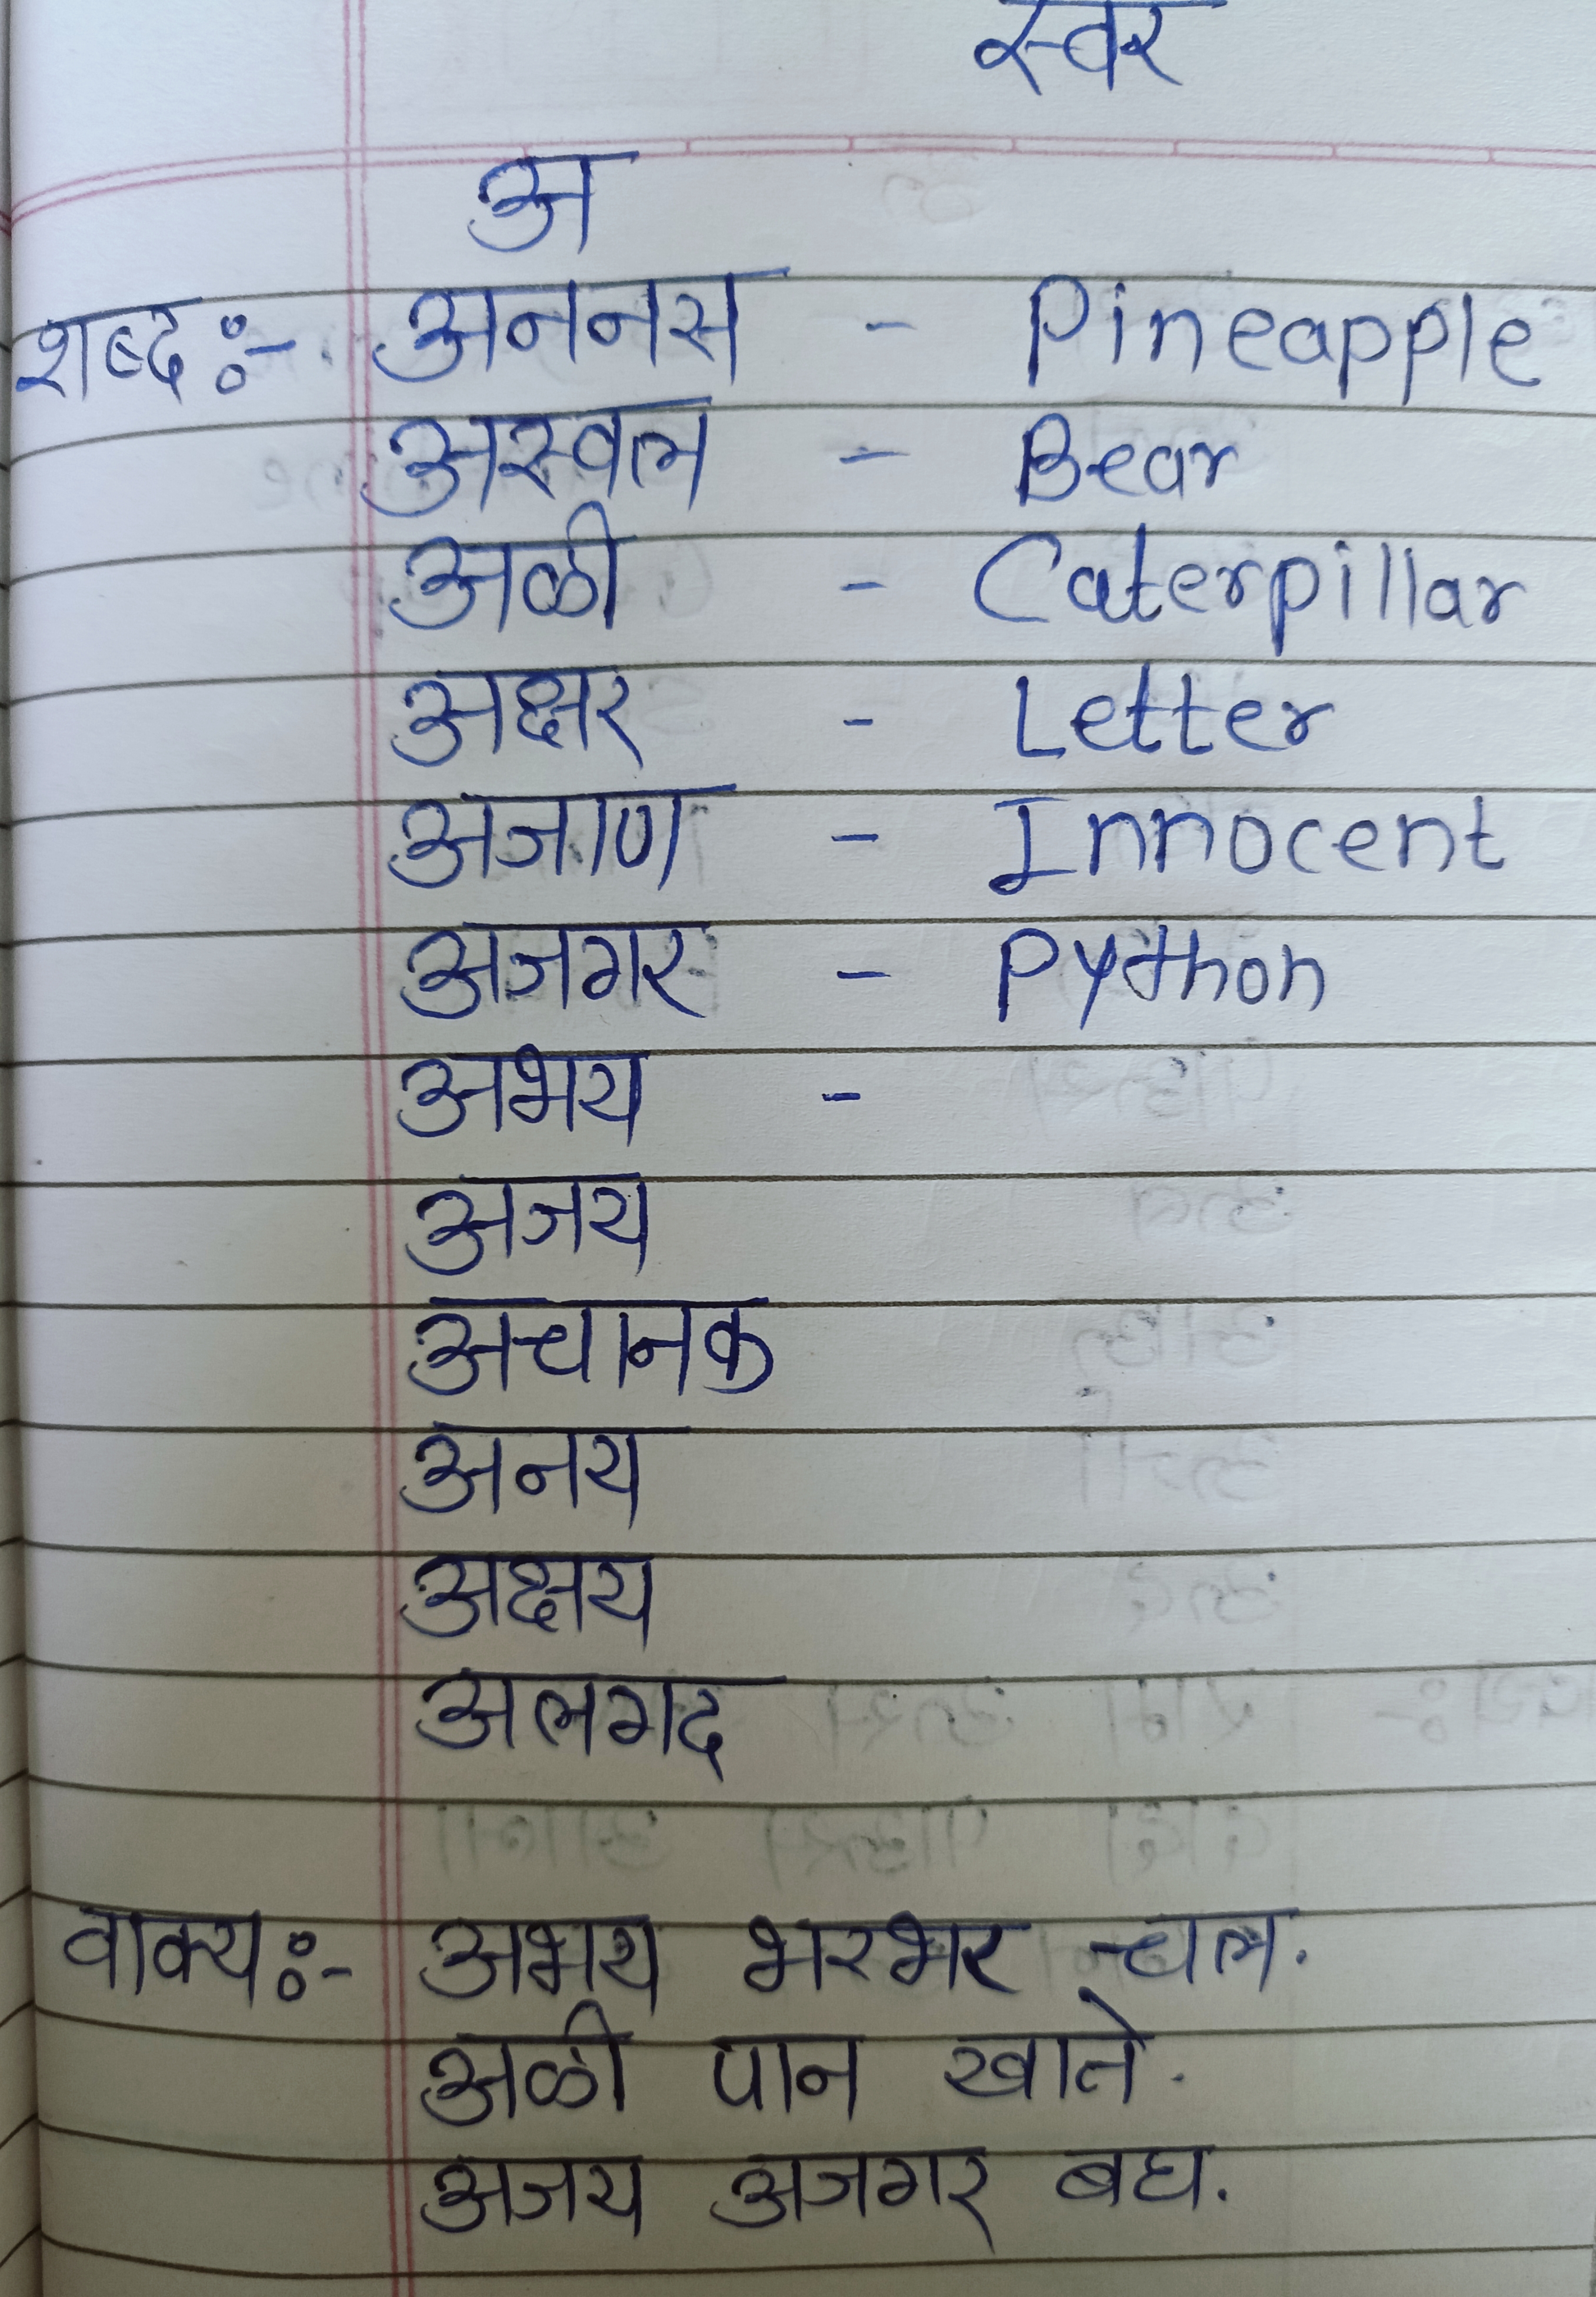 स्वर
अ
शब्द :- अननस - Pineapple
अस्वल - Bear
अळी - Caterpillar
अक्षर - Letter
अजाण - Innocent
अजगर - Python
अभय -
अजय
अचानक
अनय
अक्षय
अलगद
वाक्य :- अभय भरभर चल.
अळी पान खाते.
अजय अजगर बघ.